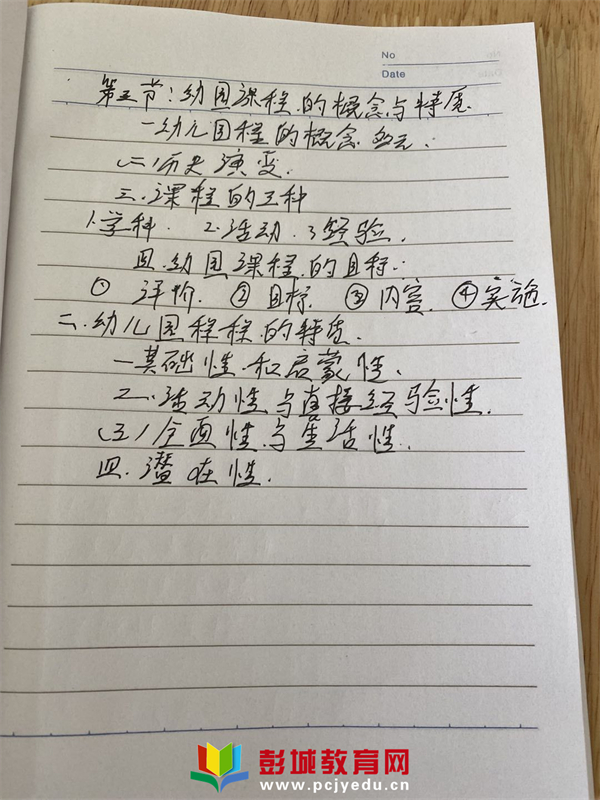 No
Date
第五节:幼园课程的概念与特质
一幼儿园程的概念
(二历史演变.
三.课程的三种
1.学科. 2.活动. 3经验.
四.幼园课程.的目标:
① 评价. ② 目标. ③ 内容. ④实施.
二.幼儿园程程的特质.
一基础性.和启蒙性.
二.活动性与直接经验性.
(三)全面性与生活性.
四.潜在性.
彭城教育网
www.pcjyedu.cn